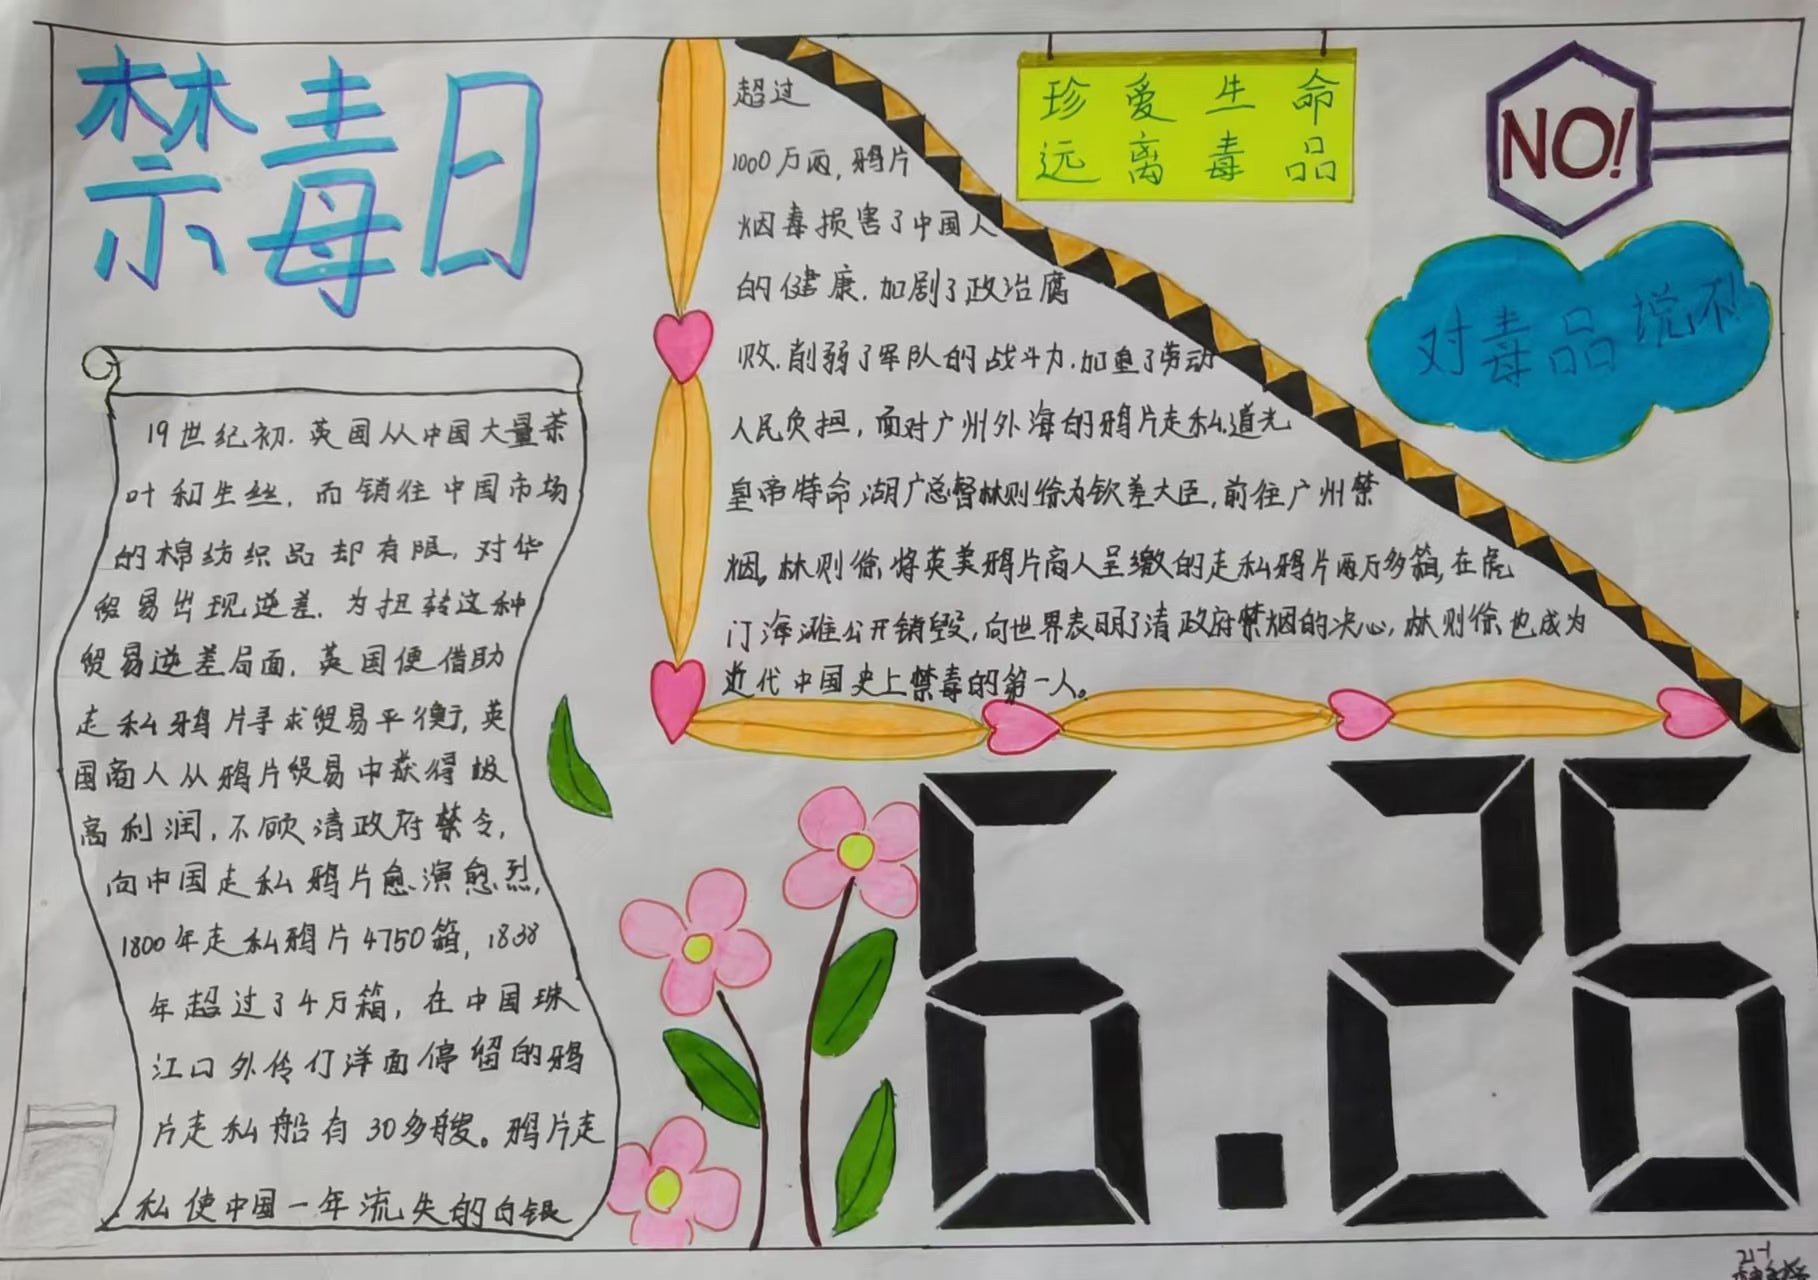 禁毒日
19世纪初.英国从中国大量茶
叶和生丝,而销往中国市场
的棉纺织品却有限,对华
贸易出现逆差.为扭转这种
贸易逆差局面,英国便借助
走私鸦片寻求贸易平衡,英
国商人从鸦片贸易中获得极
高利润,不顾清政府禁令,
向中国走私鸦片愈演愈烈,
1800年走私鸦片4750箱,1838
年超过了4万箱,在中国珠
江口外伶仃洋面停留的鸦
片走私船有30多艘。鸦片走
私使中国一年流失的白银
超过
1000万两,鸦片
烟毒损害了中国人
的健康.加剧了政治腐
败.削弱了军队的战斗力.加重了劳动
人民负担,面对广州外海的鸦片走私道光
皇帝特命湖广总督林则徐为钦差大臣,前往广州禁
烟,林则徐将英美鸦片商人呈缴的走私鸦片两万多箱,在虎
门海滩公开销毁,向世界表明了清政府禁烟的决心,林则徐也成为
近代中国史上禁毒的第一人。
珍爱生命
远离毒品
NO!
对毒品说不!
6.26
21-1